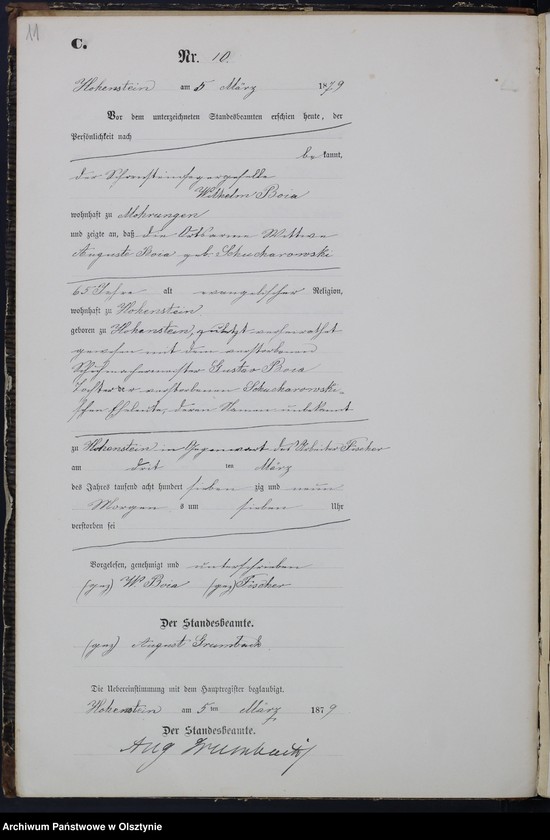 11
C.
Nr. 10.
Hohenstein am 5 März 1879
Vor dem unterzeichneten Standesbeamten erschien heute, der
Persönlichkeit nach
bekannt,
der Schornsteinfegergeselle
Wilhelm Boia
wohnhaft zu Mohrungen
und zeigte an, daß die Ortsarme Wittwe
Auguste Boia geb. Schucharowski
65 Jahre alt evangelischer Religion,
wohnhaft zu Hohenstein
geboren zu Hohenstein, zuletzt verheirathet
gewesen mit dem verstorbenen
Schuhmachermeister Gustav Boia
Tochter der verstorbenen Schucharowski-
schen Eheleute, deren Namen unbekannt
zu Hohenstein in Gegenwart des Arbeiter Fischer
am drei ten März
des Jahres tausend acht hundert sieben zig und neun
Morgens um sieben Uhr
verstorben sei
Vorgelesen, genehmigt und unterschrieben
(gez) W. Boia (gez) Fischer
Der Standesbeamte.
(gez) August Grumbach
Die Uebereinstimmung mit dem Hauptregister beglaubigt.
Hohenstein am 5 ten März 1879
Der Standesbeamte.
Aug Grumbach
Archiwum Państwowe w Olsztynie